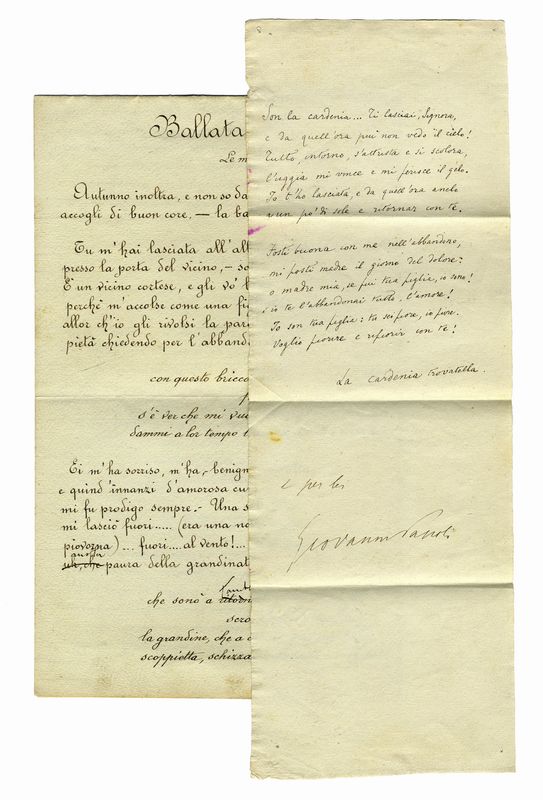 Ballata
Le m
Autunno inoltra, e non so da
accogli di buon core, — la ba
Tu m'hai lasciata all'alt
presso la porta del vicino, — so
È un vicino cortese, e gli vo' b
perchè m'accolse come una fig
allor ch'io gli rivolsi la par
pietà chiedendo per l'abband
con questo bricco
s'è ver che mi vuo
dammi a lor tempo l
Ei m'ha sorriso, m'ha, benign
e quind'innanzi d'amorosa cu
mi fu prodigo sempre. – Una s
mi lasciò fuori..... (era una no
piovorna)... fuori.... al vento!...
paura della grandinat
che sono a
scro
la grandine, che a
scoppietta, schizza
Son la cardenia... Ti lasciai, Signora,
e da quell'ora più non vedo il cielo!
Tutto, intorno, s'attrista e si scolora,
l'uggia mi vince e mi ferisce il gelo.
Io t'ho lasciata, e da quell'ora anelo
a un po' di sole e ritornar con te.
Fosti buona con me nell'abbandono,
mi fosti madre il giorno del dolore:
o madre mia, se fui tua figlia, io sono!
s'io te l'abbandonai tutto, l'amore!
Io son tua figlia: tu sei fiore, io fiore.
Voglio fiorire e rifiorir con te!
La cardenia trovatella.
e per lei
Giovanni